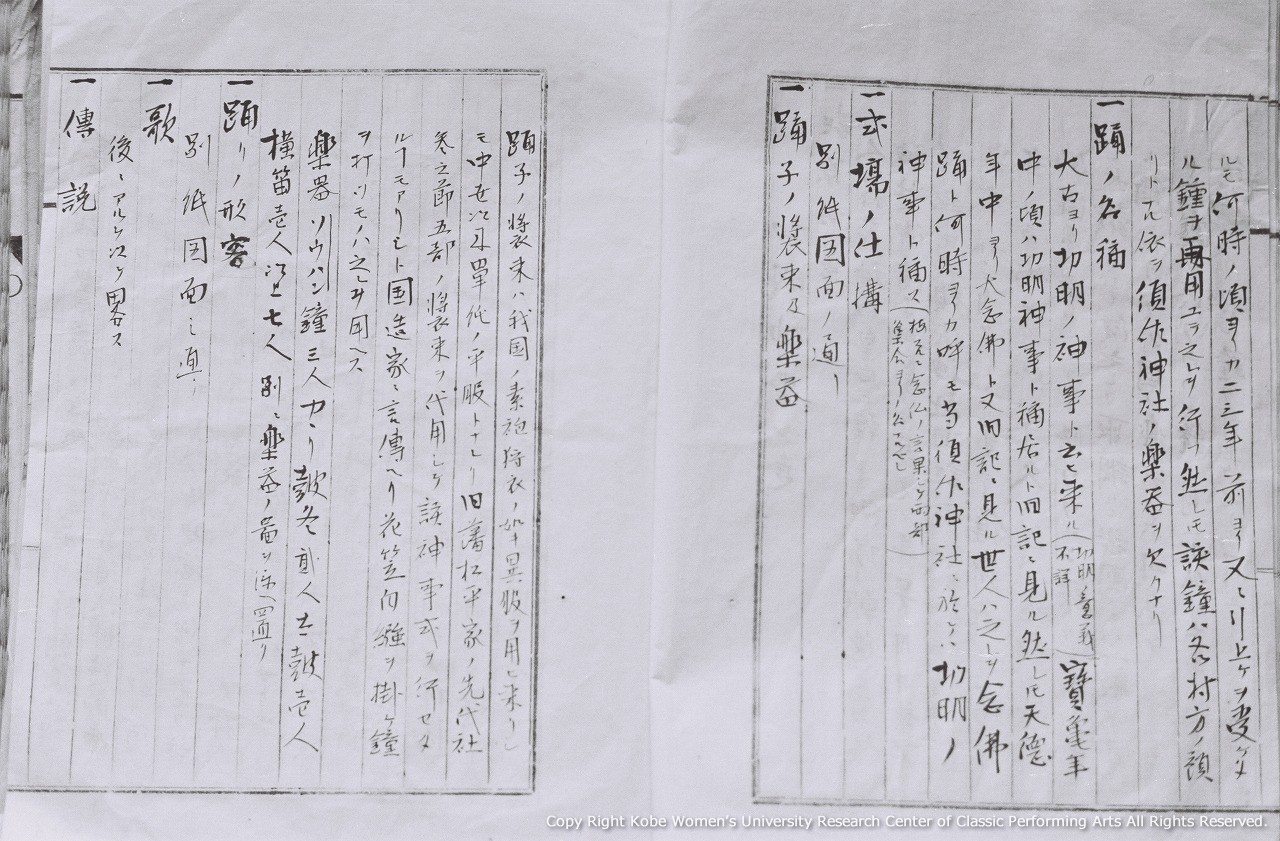 ルモ何時ノ頃ヨリカ二三年前ヨリ又々引上ケヲ受ケタ
ル鐘ヲ再用ユラシ之レヲ行フ然レモ該鐘ハ各村方ノ願
リト云依テ須佐神社ノ楽器ヲ欠クナリ
一踊ノ名稱
大古ヨリ切明ノ神事ト云ヒ来ル(切明ノ意義不詳)寶亀年
中ノ頃ハ切明神事ト稱居ルト旧記ニ見ル然レモ天徳
年中ヨリ大念佛ト又旧記ニ見ル世人ハ之レヲ念佛
踊ト何時ヨリカ呼モ当須佐神社ニ於テハ切明ノ
神事ト稱ス
一式場ノ仕構
別紙図面ノ通リ
一踊子ノ装束及楽器
踊子ノ装束ハ我国ノ素袍狩衣ノ如キ異服ヲ用ヒ来リシ
モ中世ヨリ単純ノ平服トナセリ旧藩松平家ノ先代社
参之節五部ノ装束ヲ代用シテ該神事式ヲ行セタ
ルヿモアリシト国造家ニ言傳ヘリ花笠向縫ヲ掛ケ鐘
ヲ打ツモノハ之レヲ用ヘス
楽器ソウハン鐘三人カヽリ鼓冬貳人古鼓壱人
横笛壱人 七人別ニ楽器ノ図ヲ添ヘ置ク
一踊リノ形容
別紙図面之通リ
一歌
後ニアルケ所ヲ略ス
一傳説
Copy Right Kobe Women's University Research Center of Classic Performing Arts All Rights Reserved.